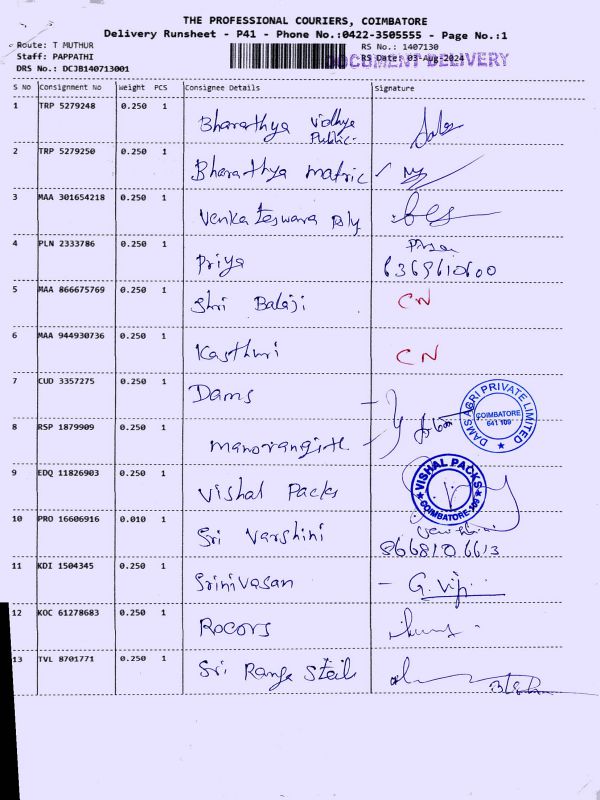 THE PROFESSIONAL COURIERS, COIMBATORE
Delivery Runsheet - P41 - Phone No.:0422-3505555 - Page No.:1
Route: T MUTHUR
RS No.: 1407130
Staff: PAPPATHI
RS Date: 03-Aug-2024
DOCUMENT DELIVERY
DRS No.: DCJB140713001
S No Consignment No Weight PCS Consignee Details Signature
1 TRP 5279248 0.250 1 Bharathya Vidhya
Public.
2 TRP 5279250 0.250 1 Bharathya matric
3 MAA 301654218 0.250 1 Venkateswara Poly
4 PLN 2333786 0.250 1 Priya
6369610600
5 MAA 866675769 0.250 1 Shri Balaji CN
6 MAA 944930736 0.250 1 Kasthuri CN
7 CUD 3357275 0.250 1 Dams
DAMS AGRI PRIVATE LIMITED
COIMBATORE
641 109
8 RSP 1879909 0.250 1
9 EDQ 11826903 0.250 1 Vishal Packs
VISHAL PACKS
10 PRO 16606916 0.010 1 Sri Varshini
8668106613
11 KDI 1504345 0.250 1 Srinivasan - G. Viji
12 KOC 61278683 0.250 1 Rocors
13 TVL 8701771 0.250 1 Sri Ranga Steils